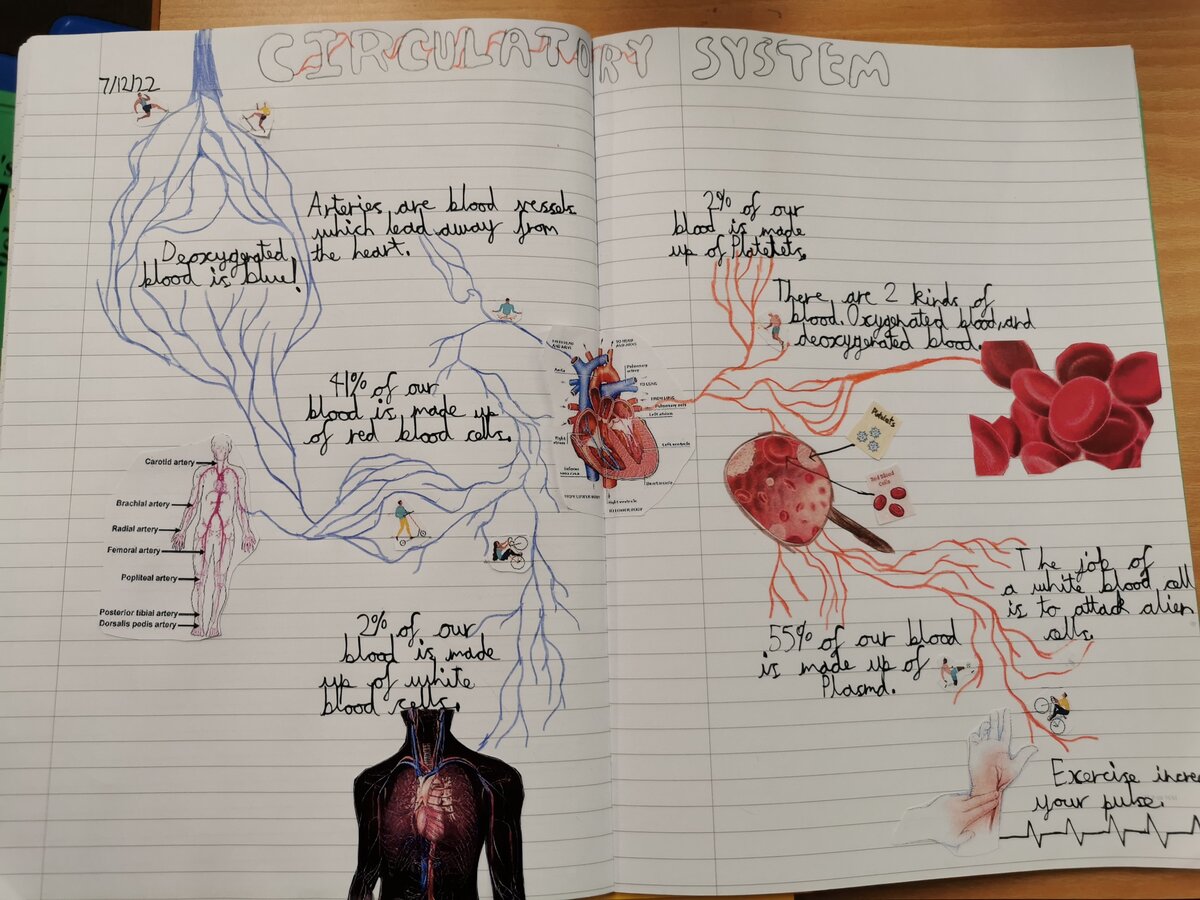 CIRCULATORY SYSTEM
7/12/22
Arteries are blood vessels
which lead away from
the heart.
Deoxygenated
blood is blue!
41% of our
blood is made up
of red blood cells.
Carotid artery
Brachial artery
Radial artery
Femoral artery
Popliteal artery
Posterior tibial artery
Dorsalis pedis artery
2% of our
blood is made
up of white
blood cells.
Aorta
Pulmonary
artery
TO LUNG
FROM LUNG
Pulmonary vein
Left atrium
Left ventricle
Right
atrium
Inferior
vena cava
Right ventricle
2% of our
blood is made
up of Platelets.
There are 2 kinds of
blood. Oxygenated blood and
deoxygenated blood.
Platelets
Red Blood
Cells
The job of
a white blood cell
is to attack alien
cells.
55% of our blood
is made up of
Plasma.
Exercise increa
your pulse.